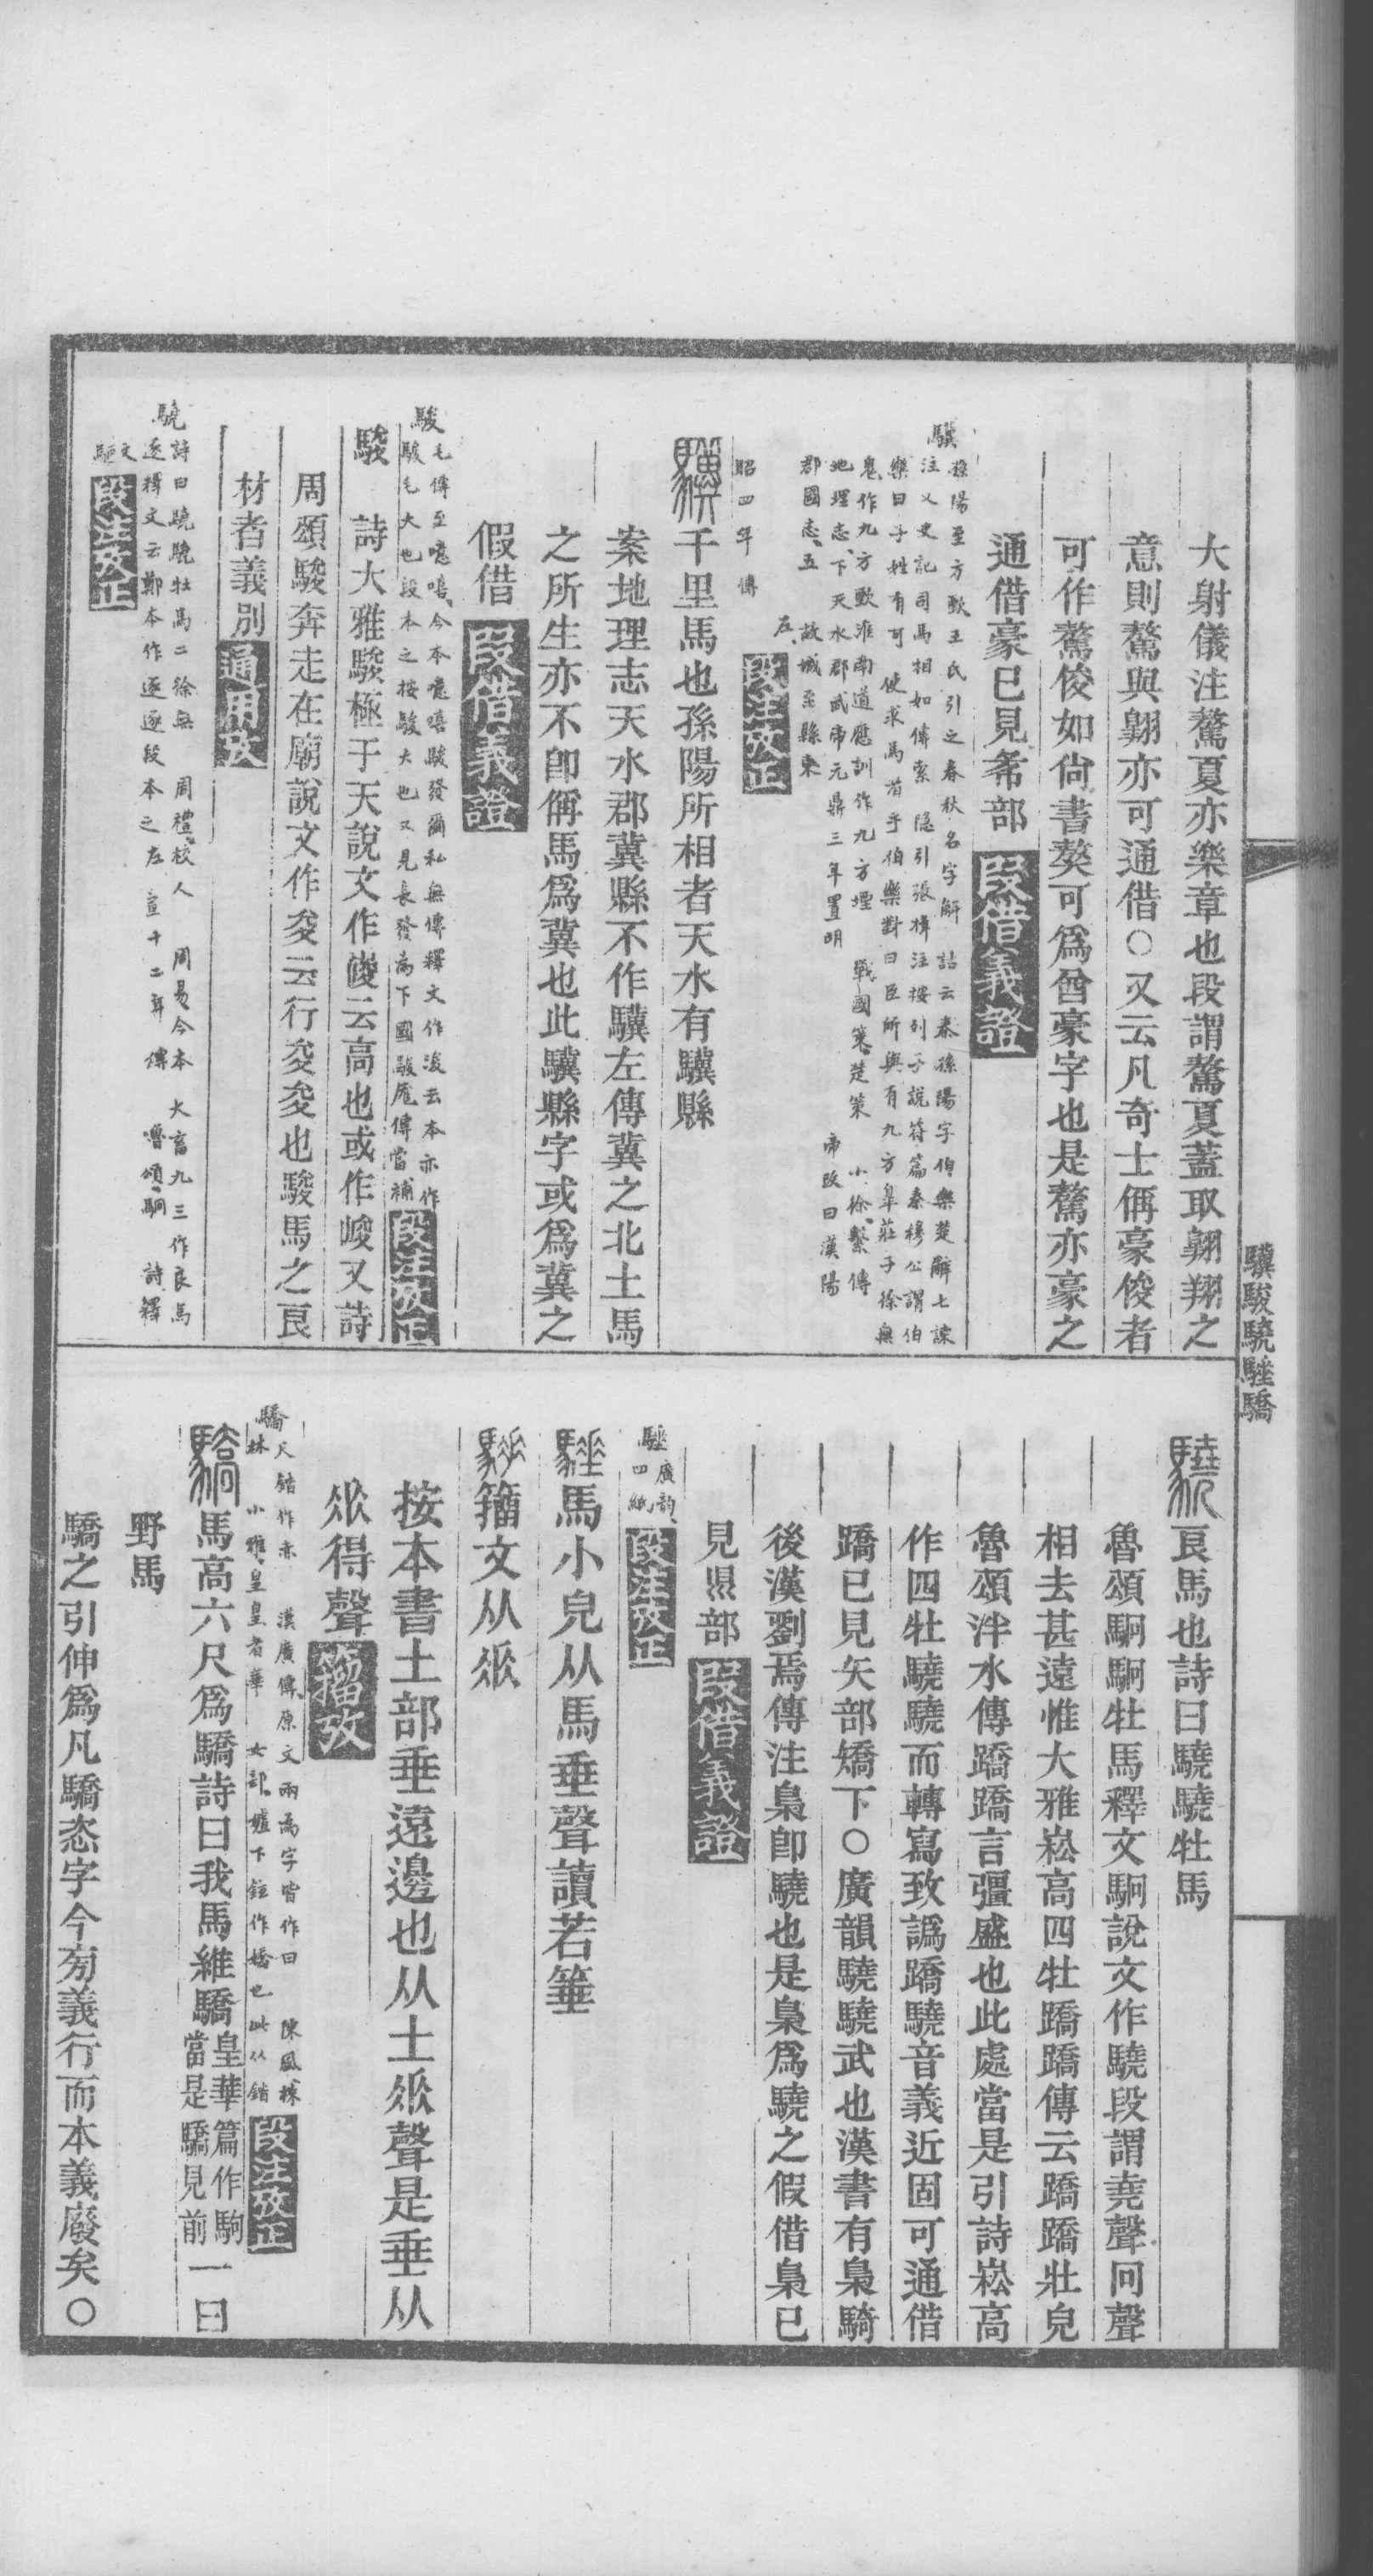 大射儀注驁夏亦樂章也段謂驁夏蓋取翺翔之
意則驁與翺亦可通借○又云凡奇士偁豪俊者
可作驁俊如尙書獒可爲酋豪字也是驁亦豪之
通借豪已見㣇部 段借義證
驥 孫陽至方歅王氏引之春秋名字解 詁云秦孫陽字伯樂楚辭七諫
注又史記司馬相如傳索 隱引張揖注按列子說符篇秦穆公謂伯
樂曰子姓有可 使求馬者乎伯樂對曰臣所與有九方皋莊子徐無
鬼作九方歅淮南道應訓作九方堙 戰國策楚策 小徐繫傳
地理志下天水郡武帝元鼎三年置明 帝改曰漢陽
郡國志五 故城至縣東
左
昭四年傳 段注攷正
驥千里馬也孫陽所相者天水有驥縣
案地理志天水郡冀縣不作驥左傳冀之北土馬
之所生亦不卽偁馬爲冀也此驥縣字或爲冀之
假借 段借義證
駿 毛傳至噫嘻今本噫嘻駿發爾私無傳釋文作浚云本亦作
駿毛大也段本之按駿大也又見長發爲下國駿厖傳當補 段注攷正
駿 詩大雅駿極于天說文作㕙云高也或作峻又詩
周頌駿奔走在廟說文作夋云行夋夋也駿馬之良
材者義別 通用攷
驍 詩曰驍驍牡馬二徐無 周禮校人 周易今本 大畜九三作良馬
逐釋文云鄭本作逐逐段本之左 宣十二年傳 魯頌駉 詩釋
文 駉 段注攷正
驥駿驍騅驕
驍良馬也詩曰驍驍牡馬
魯頌駉駉牡馬釋文駉說文作驍段謂堯聲冋聲
相去甚遠惟大雅崧高四牡蹻蹻傳云蹻蹻壯皃
魯頌泮水傳蹻蹻言彊盛也此處當是引詩崧高
作四牡驍驍而轉寫致譌蹻驍音義近固可通借
蹻已見矢部矯下○廣韻驍驍武也漢書有梟騎
後漢劉焉傳注梟卽驍也是梟爲驍之假借梟已
見㬎部 段借義證
廣韵
四紙 段注攷正
馬小皃从馬垂聲讀若箠
籒文从𠂹
按本書土部垂遠邊也从土𠂹聲是垂从
𠂹得聲 籒攷
驕 尺 鍇作赤 漢廣傳原文兩爲字皆作曰 陳風株
林 小雅皇皇者華 女部嫭下鉉作嬌也此从鍇 段注攷正
驕馬高六尺爲驕詩曰我馬維驕 皇華篇作駒 當是驕見前 一曰
野馬
驕之引伸爲凡驕恣字今㫄義行而本義廢矣○